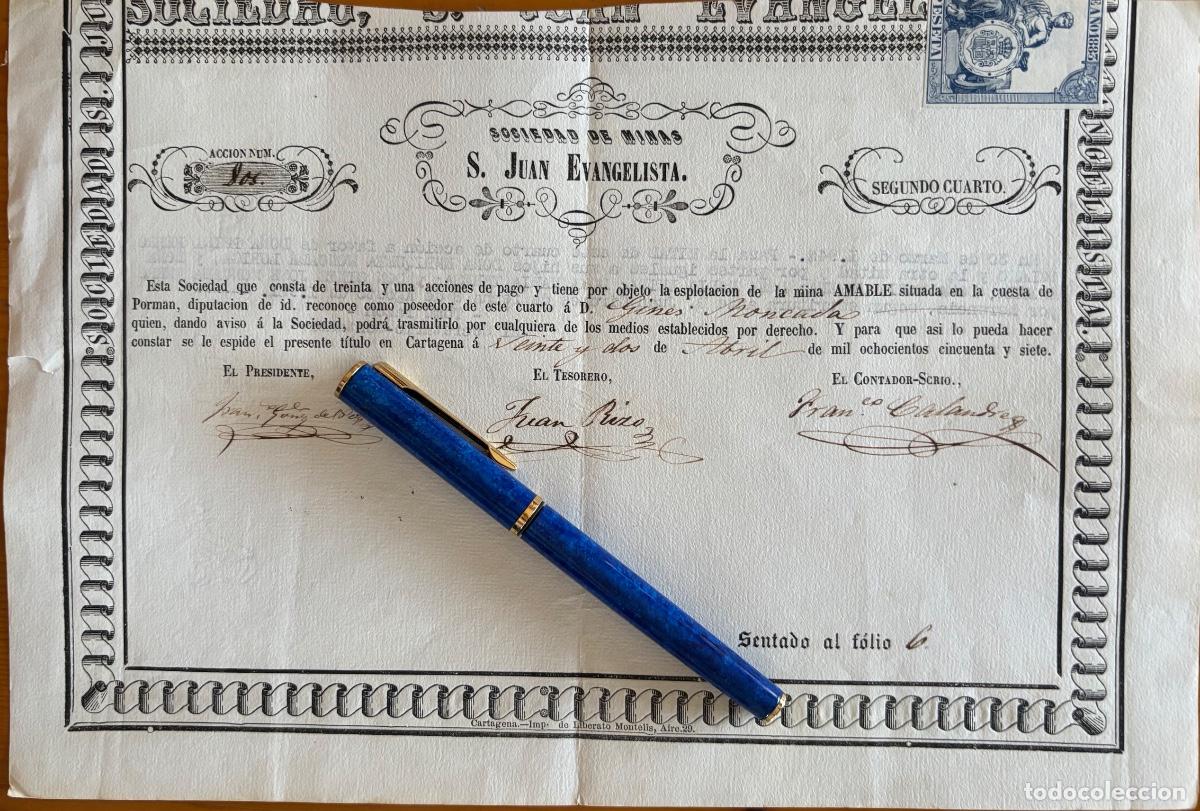 SOCIEDAD, S. JUAN EVANGEL
PESETA
AÑO 1883
SOCIEDAD DE MINAS
S. JUAN EVANGELISTA.
ACCION NUM.
Dos.
SEGUNDO CUARTO.
Esta Sociedad que consta de treinta y una acciones de pago y tiene por objeto la esplotacion de la mina AMABLE situada en la cuesta de
Porman, diputacion de id. reconoce como poseedor de este cuarto á D. Gines Moncada
quien, dando aviso á la Sociedad, podrá trasmitirlo por cualquiera de los medios establecidos por derecho. Y para que asi lo pueda hacer
constar se le espide el presente título en Cartagena á Veinte y dos de Abril de mil ochocientos cincuenta y siete.
EL PRESIDENTE,
EL TESORERO,
EL CONTADOR-SCRIO.,
Juan Rizo
Fran.co Calandre
Sentado al fólio 6
Cartagena.—Imp. de Liberato Montells, Aire.29.
todocoleccion